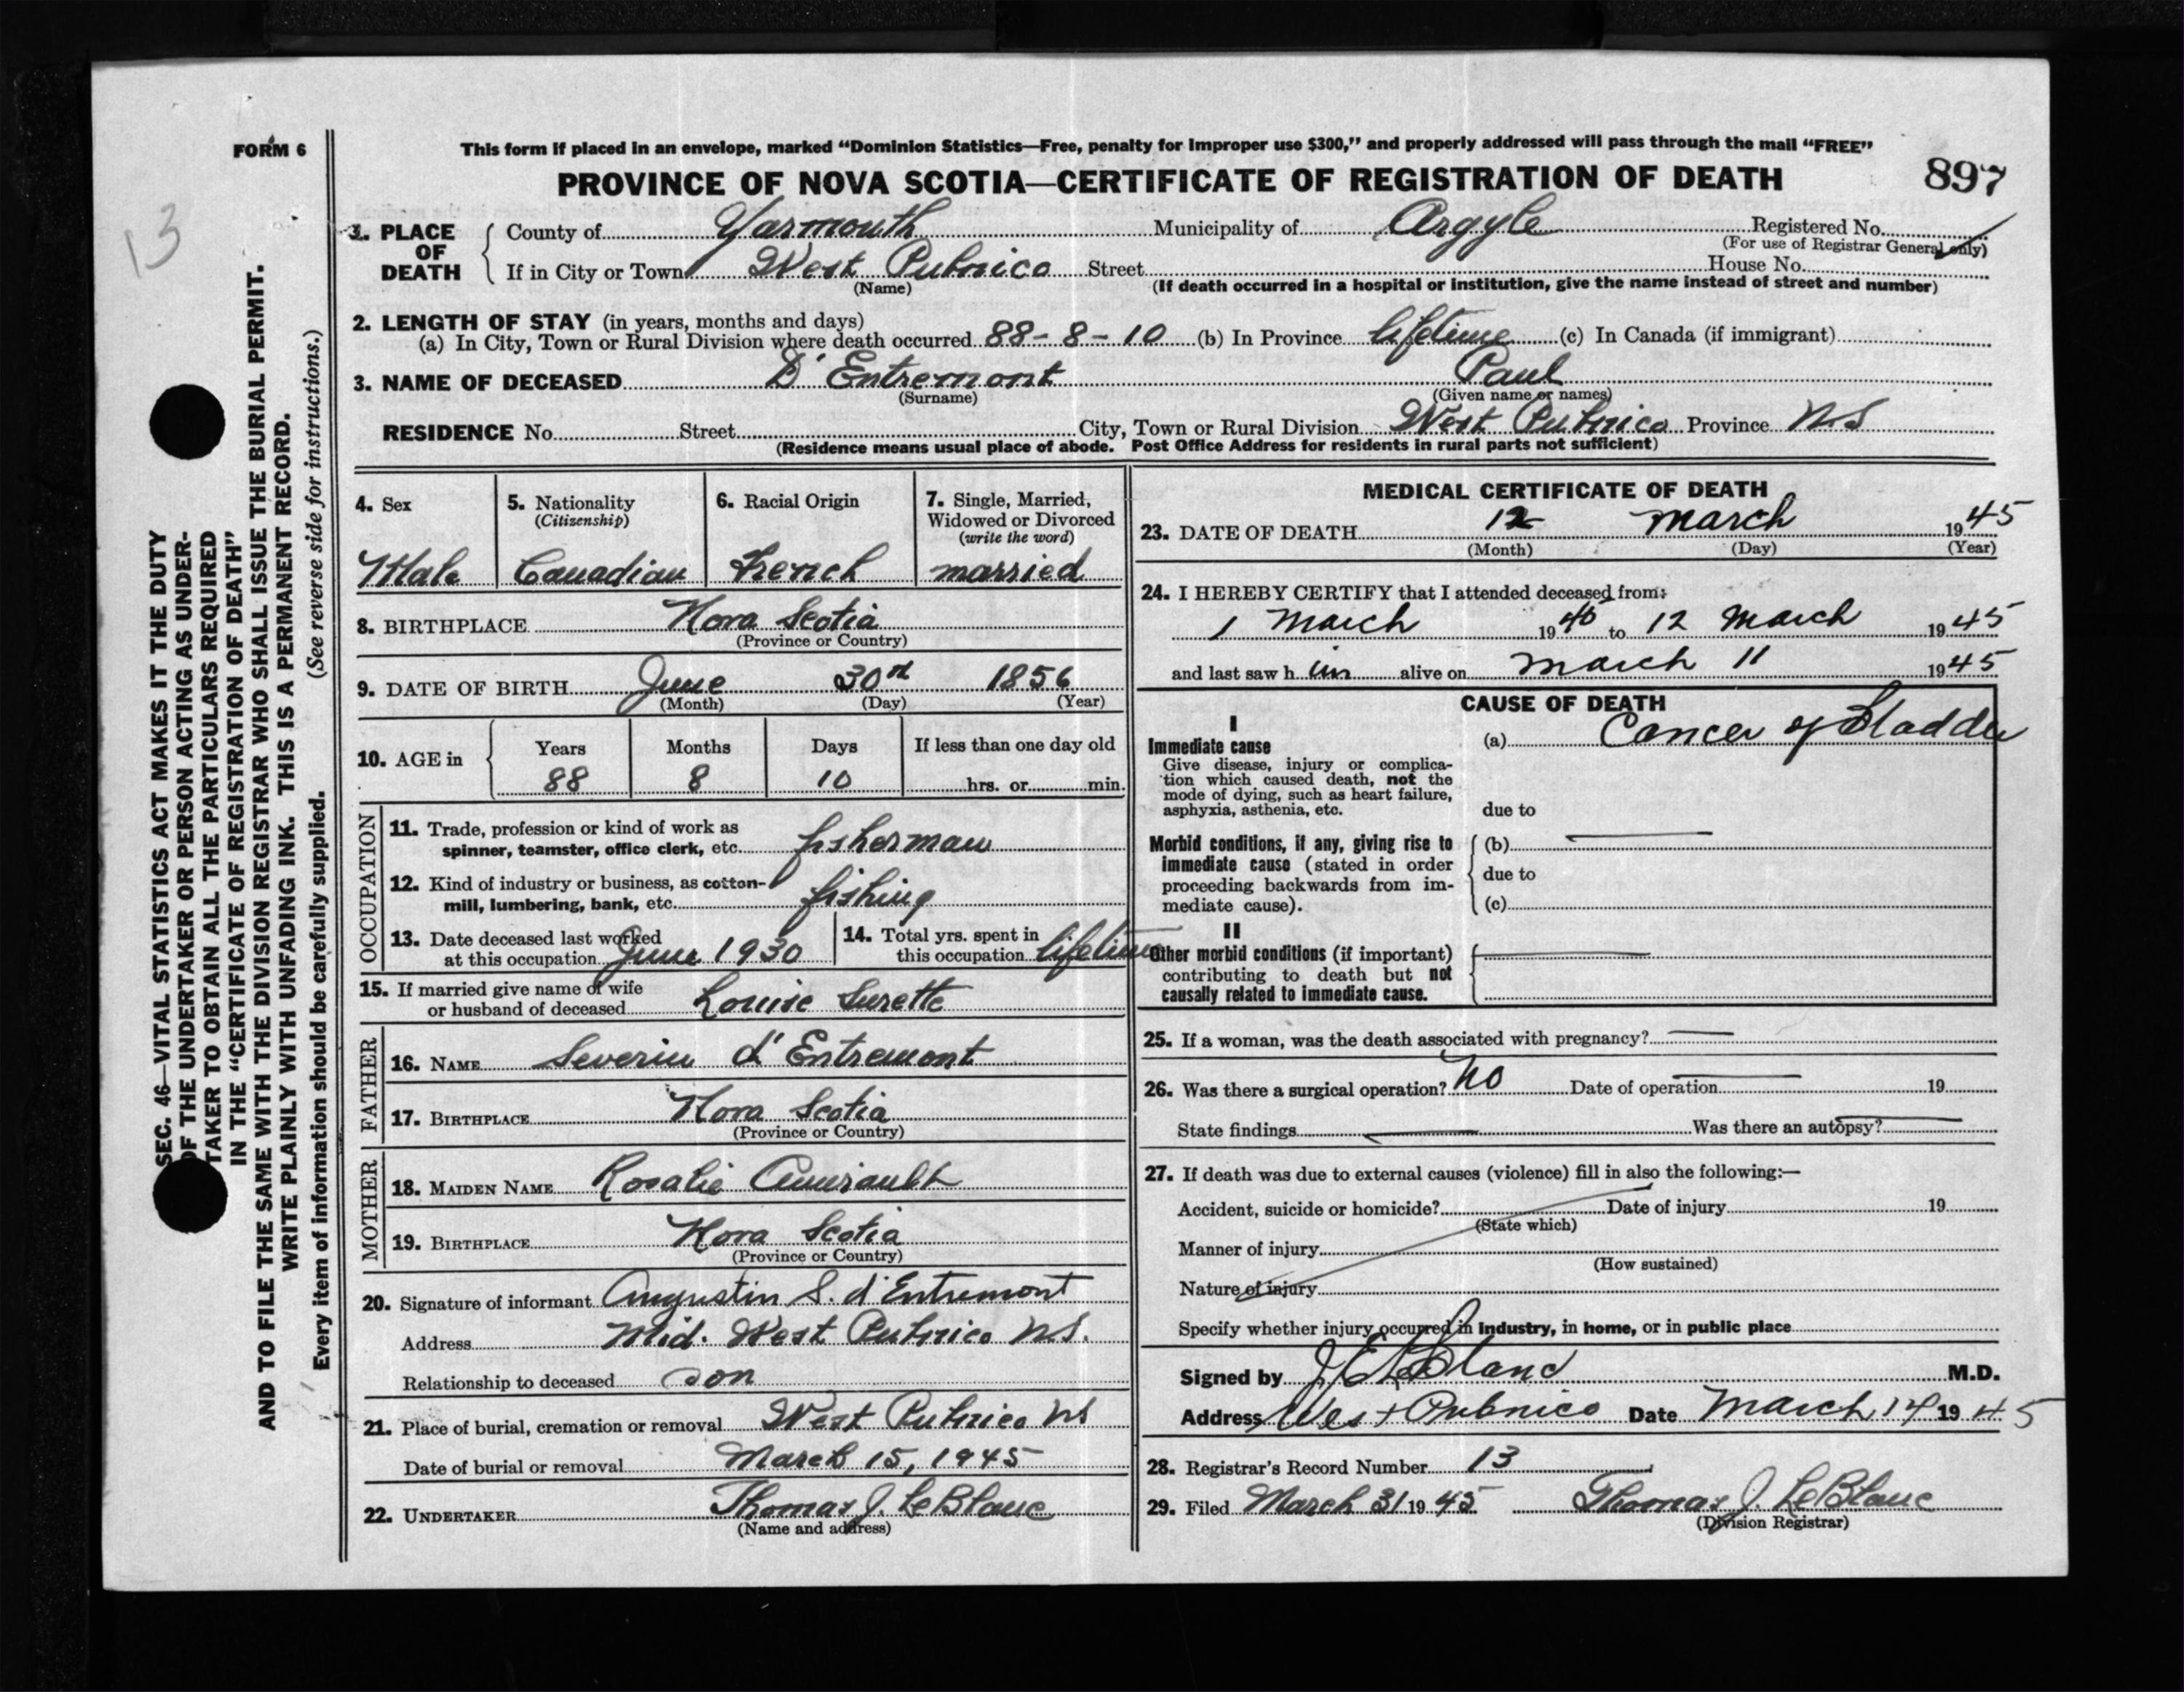 FORM 6
This form if placed in an envelope, marked "Dominion Statistics—Free, penalty for improper use $300," and properly addressed will pass through the mail "FREE"
PROVINCE OF NOVA SCOTIA—CERTIFICATE OF REGISTRATION OF DEATH
897
13
1. PLACE OF DEATH
County of Yarmouth Municipality of Argyle Registered No.
(For use of Registrar General only)
If in City or Town West Pubnico Street House No.
(Name) (If death occurred in a hospital or institution, give the name instead of street and number)
2. LENGTH OF STAY (in years, months and days)
(a) In City, Town or Rural Division where death occurred 88-8-10 (b) In Province lifetime (c) In Canada (if immigrant)
3. NAME OF DECEASED D'Entremont Paul
(Surname) (Given name or names)
RESIDENCE No. Street City, Town or Rural Division West Pubnico Province N.S
(Residence means usual place of abode. Post Office Address for residents in rural parts not sufficient)
SEC. 46—VITAL STATISTICS ACT MAKES IT THE DUTY
OF THE UNDERTAKER OR PERSON ACTING AS UNDER-
TAKER TO OBTAIN ALL THE PARTICULARS REQUIRED
IN THE "CERTIFICATE OF REGISTRATION OF DEATH"
AND TO FILE THE SAME WITH THE DIVISION REGISTRAR WHO SHALL ISSUE THE BURIAL PERMIT.
WRITE PLAINLY WITH UNFADING INK. THIS IS A PERMANENT RECORD.
Every item of information should be carefully supplied. (See reverse side for instructions.)
4. Sex
Male
5. Nationality
(Citizenship)
Canadian
6. Racial Origin
French
7. Single, Married,
Widowed or Divorced
(write the word)
married
8. BIRTHPLACE Nova Scotia
(Province or Country)
9. DATE OF BIRTH June 30th 1856
(Month) (Day) (Year)
10. AGE in
Years Months Days If less than one day old
88 8 10 hrs. or min.
OCCUPATION
11. Trade, profession or kind of work as
spinner, teamster, office clerk, etc. fisherman
12. Kind of industry or business, as cotton-
mill, lumbering, bank, etc. fishing
13. Date deceased last worked
at this occupation June 1930
14. Total yrs. spent in
this occupation lifetime
15. If married give name of wife
or husband of deceased Louise Surette
FATHER
16. NAME Severin d'Entremont
17. BIRTHPLACE Nova Scotia
(Province or Country)
MOTHER
18. MAIDEN NAME Rosalie Amirault
19. BIRTHPLACE Nova Scotia
(Province or Country)
20. Signature of informant Augustin S. d'Entremont
Address Mid. West Pubnico N.S.
Relationship to deceased son
21. Place of burial, cremation or removal West Pubnico NS
Date of burial or removal March 15, 1945
22. UNDERTAKER Thomas J. LeBlanc
(Name and address)
MEDICAL CERTIFICATE OF DEATH
23. DATE OF DEATH 12 March 1945
(Month) (Day) (Year)
24. I HEREBY CERTIFY that I attended deceased from:
1 March 1940 to 12 March 1945
and last saw h im alive on March 11 1945
CAUSE OF DEATH
I
Immediate cause
Give disease, injury or complica-
tion which caused death, not the
mode of dying, such as heart failure,
asphyxia, asthenia, etc.
(a) Cancer of Bladder
due to
Morbid conditions, if any, giving rise to
immediate cause (stated in order
proceeding backwards from im-
mediate cause).
(b)
due to
(c)
II
Other morbid conditions (if important)
contributing to death but not
causally related to immediate cause.
25. If a woman, was the death associated with pregnancy?
26. Was there a surgical operation? No Date of operation 19
State findings Was there an autopsy?
27. If death was due to external causes (violence) fill in also the following:—
Accident, suicide or homicide? Date of injury 19
(State which)
Manner of injury
(How sustained)
Nature of injury
Specify whether injury occurred in industry, in home, or in public place
Signed by J. E. LeBlanc M.D.
Address West Pubnico Date March 14 1945
28. Registrar's Record Number 13
29. Filed March 31 1945 Thomas J. LeBlanc
(Division Registrar)